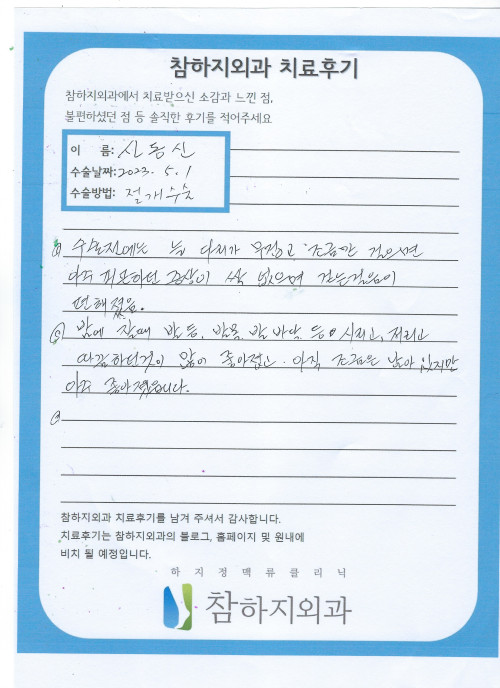 참하지외과 치료후기
참하지외과에서 치료받으신 소감과 느낀 점,
불편하셨던 점 등 솔직한 후기를 적어주세요
이 름: 신동신
수술날짜: 2023. 5. 1
수술방법: 절개수술
① 수술전에는 늘 다리가 무겁고 조금만 걸으면
아주 피곤하던 증상이 싹 없으며 걷는걸음이
편해졌음.
② 밤에 잘때 발등, 발목, 발바닥 등이 시리고, 저리고
따끔하던것이 많이 좋아졌고. 아직 조금은 남아있지만
아주 좋아졌읍니다.
참하지외과 치료후기를 남겨 주셔서 감사합니다.
치료후기는 참하지외과의 블로그, 홈페이지 및 원내에
비치 될 예정입니다.
하지정맥류클리닉
참하지외과